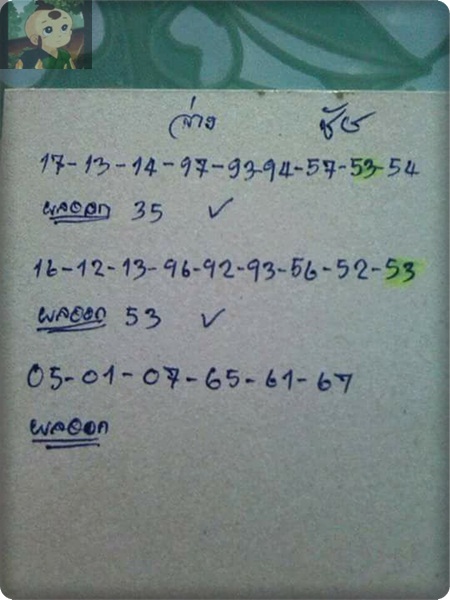 ล่าง ชัย
17-13-14-97-93-94-57-53-54
ผลออก 35 ✓
16-12-13-96-92-93-56-52-53
ผลออก 53 ✓
05-01-07-65-61-67
ผลออก